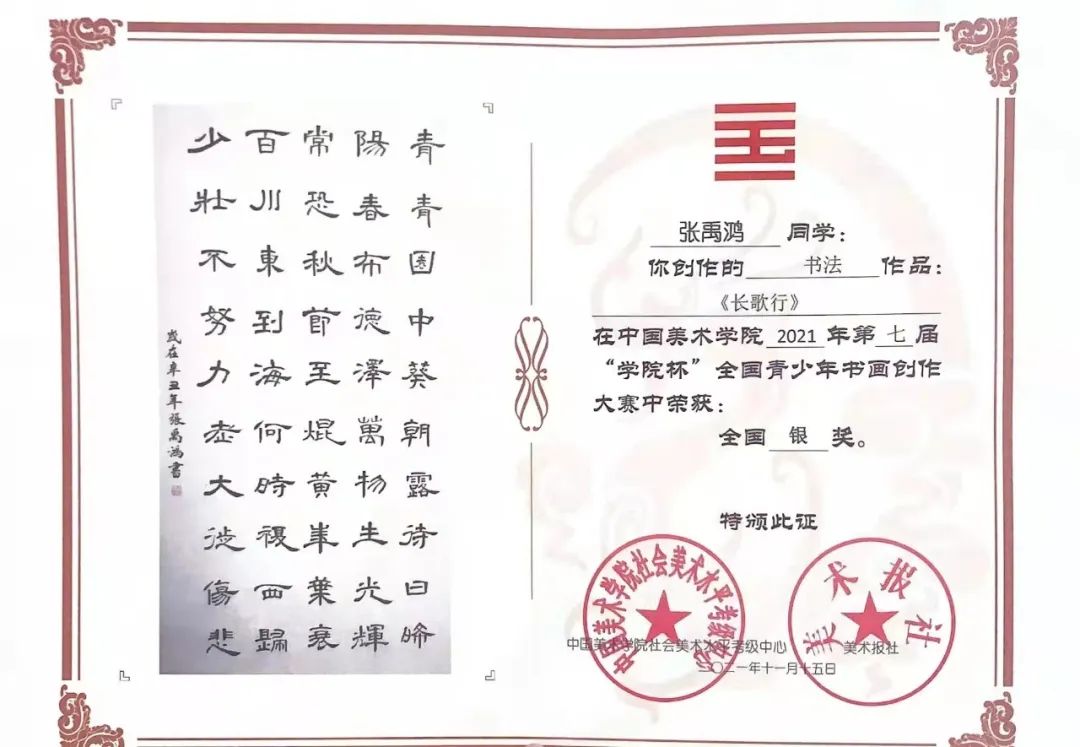 青青園中葵朝露待日晞
陽春布德澤萬物生光輝
常恐秋節至焜黄華葉衰
百川東到海何時復西歸
少壯不努力老大徒傷悲
歲在辛丑年張禹鴻書
张禹鸿 同学：
你创作的 书法 作品：
《长歌行》
在中国美术学院 2021 年第 七 届
“学院杯”全国青少年书画创作
大赛中荣获：
全国 银 奖。
特颁此证
中国美术学院社会美术水平考级中心
美术报社
中国美术学院社会美术水平考级中心 美术报社
二〇二一年十一月十五日